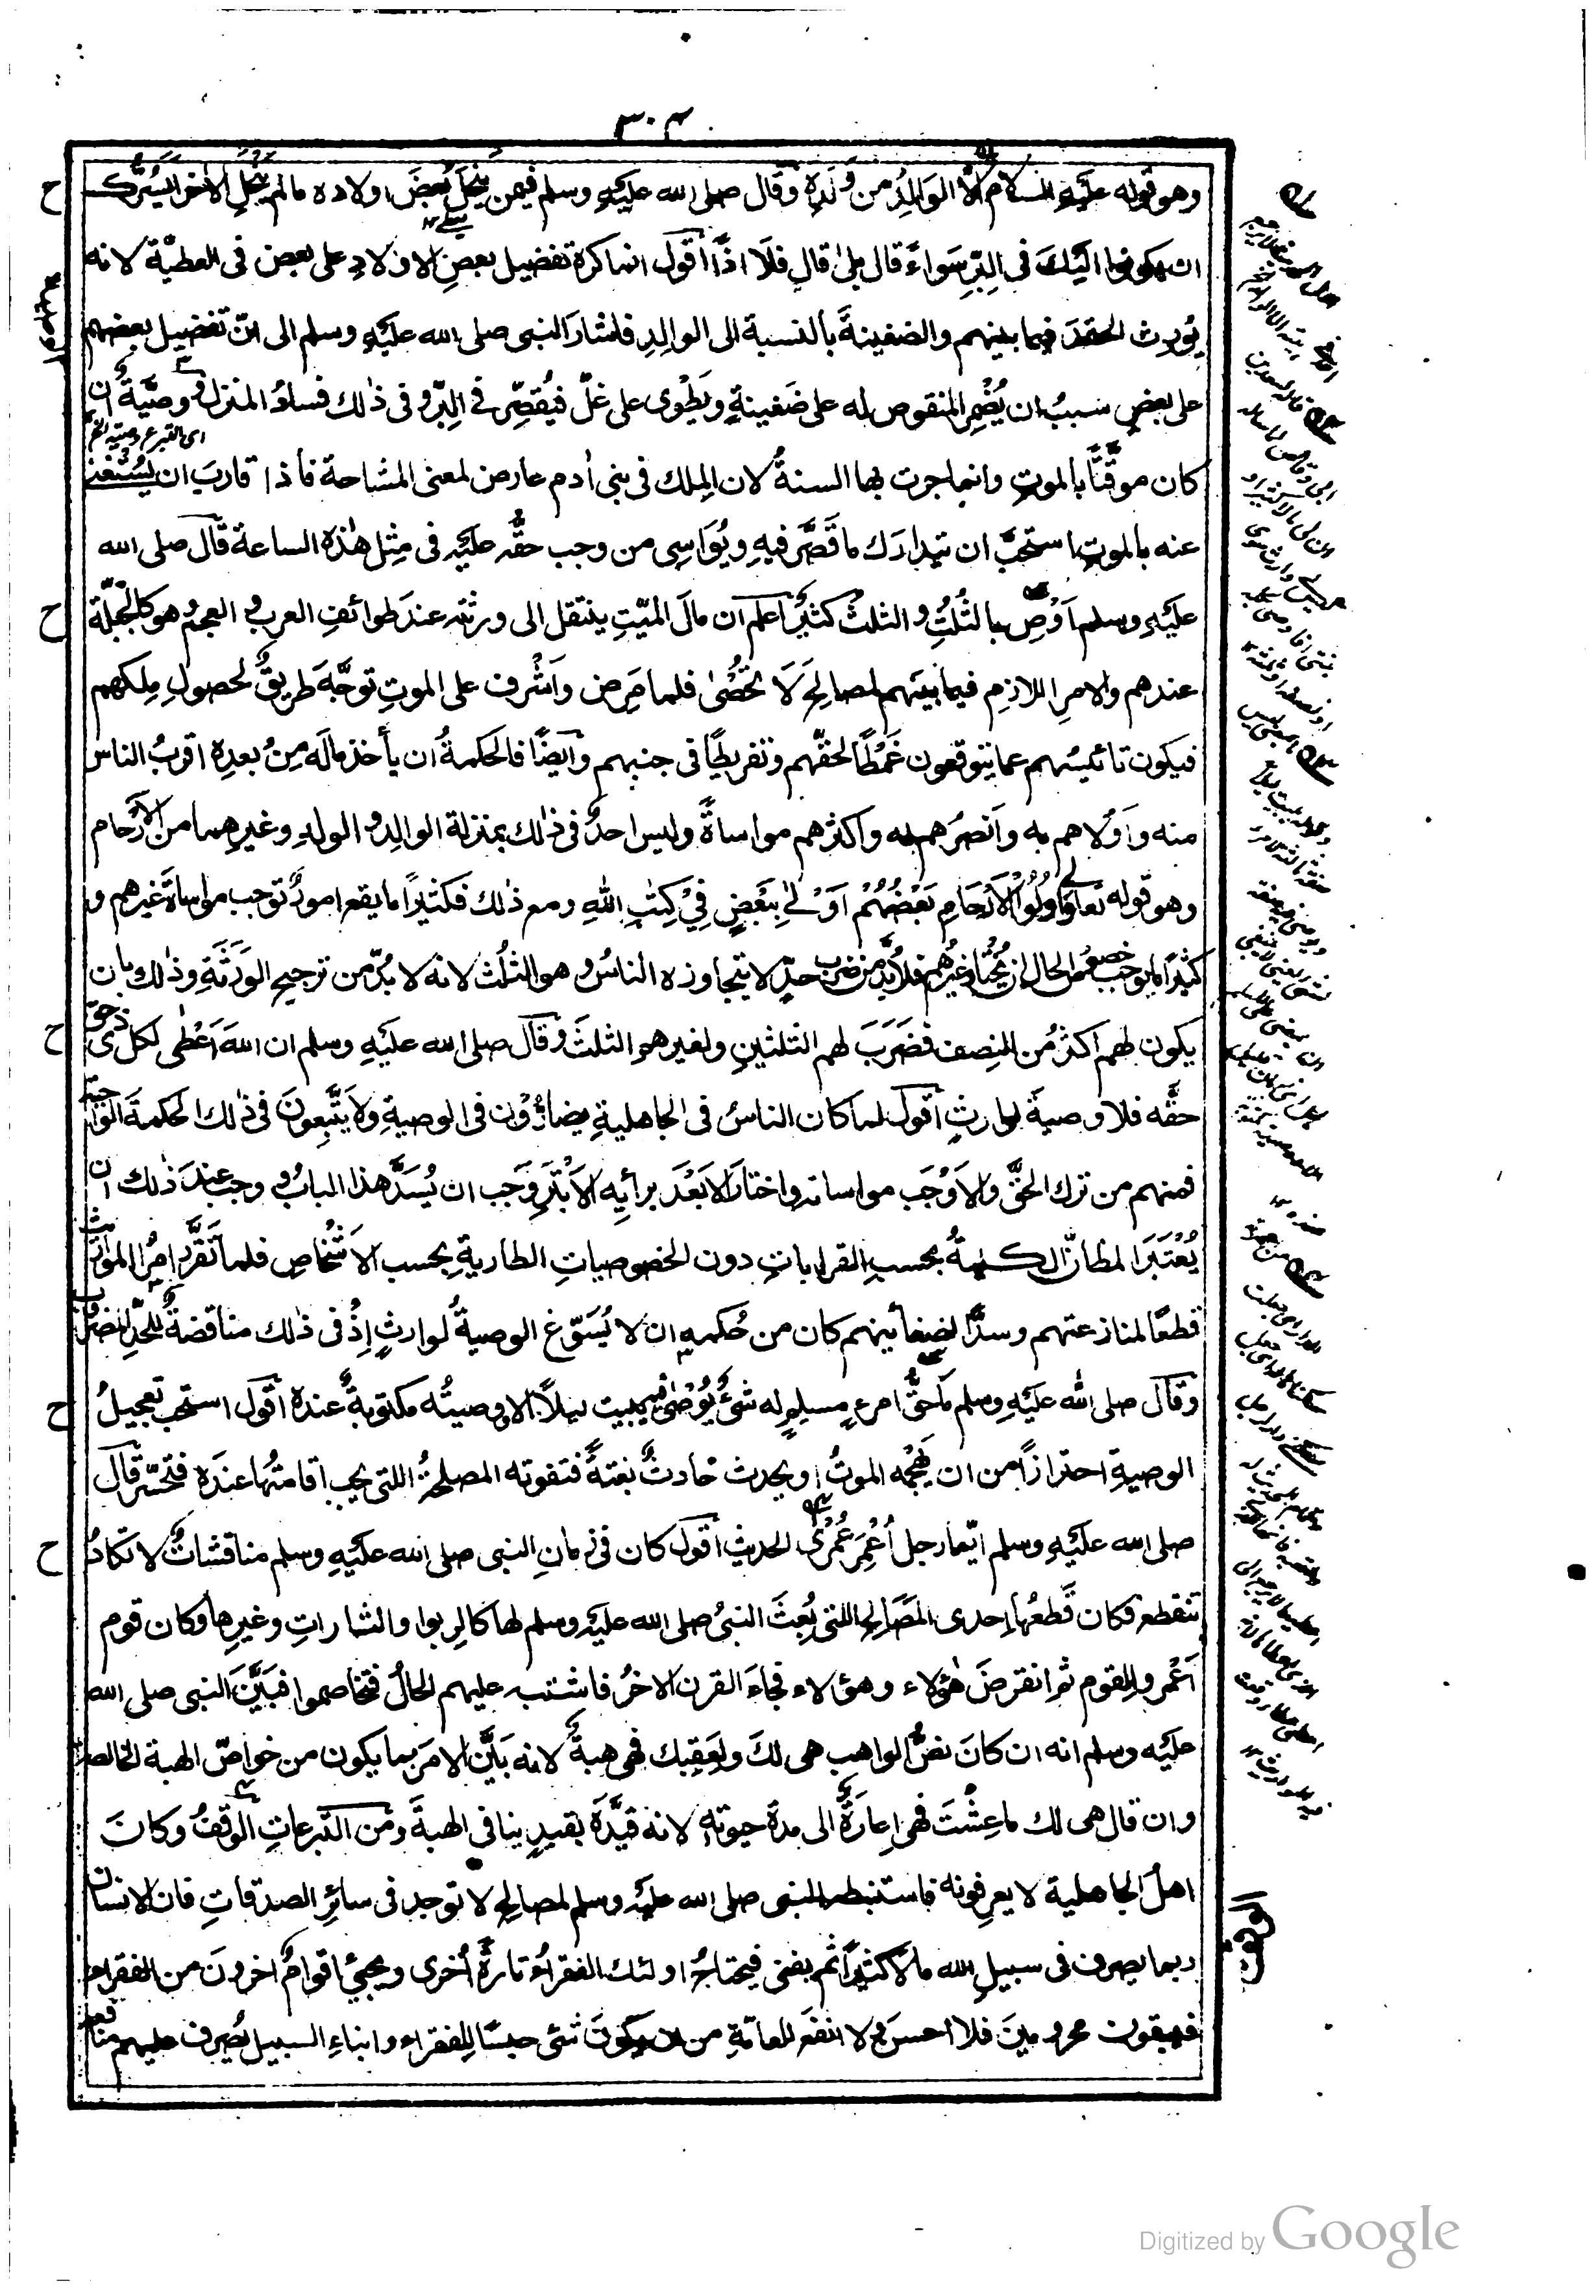 ٣٠٤
وهو قوله عليه السلام الا الوالد من ولده وقال صلى الله عليه وسلم فيمن ينحل بعض اولاده مالم ينحل الاخر ايسرك
ان يكونوا اليك في البر سواء قال بلى قال فلا اذا اقول انما كره تفضيل بعض الاولاد على بعض في العطية لانه
يورث الحقد فيما بينهم والضغينة بالنسبة الى الوالد فاشار النبي صلى الله عليه وسلم الى ان تفضيل بعضهم
على بعض سبب ان يضمر المنقوص له على ضغينة ويطوى على غل فيقصر في البر وفي ذلك فساد المنزل ووصية ان
كان موقتا بالموت وانما جرت بها السنة لان الملك في بني ادم عارض لمعنى المشاحة فاذا قارب ان يستغنى
عنه بالموت استحب ان يتدارك ما قصر فيه ويواسى من وجب حقه عليه في مثل هذه الساعة قال صلى الله
عليه وسلم اوص بالثلث والثلث كثير اعلم ان مال الميت ينتقل الى ورثته عند طوائف العرب والعجم وهو كالجبلة
عندهم والامر اللازم فيما بينهم لمصالح لا تحصى فلما مرض واشرف على الموت توجه طريق لحصول ملكهم
فيكون تائيسهم عما يتوقعون غمطا لحقهم وتفريطا في جنبهم وايضا فالحكمة ان يأخذ ماله من بعده اقرب الناس
منه واولاهم به وانصرهم له واكثرهم مواساة وليس احد في ذلك بمنزلة الوالد والولد وغيرهما من الارحام
وهو قوله تعالى واولوا الارحام بعضهم اولى ببعض في كتب الله ومع ذلك فكثيرا ما يقع امور توجب مواساة غيرهم و
كثيرا ما يوجب خصوص الحال ان يختار غيرهم فلابد من ضرب حد لا يتجاوزه الناس وهو الثلث لانه لا بد من ترجيح الورثة وذلك بان
يكون لهم اكثر من النصف فضرب لهم الثلثين ولغيرهم الثلث وقال صلى الله عليه وسلم ان الله اعطى لكل ذي حق
حقه فلا وصية لوارث اقول لما كان الناس في الجاهلية يضارون في الوصية ولا يتبعون في ذلك الحكمة الواجبة
فمنهم من ترك الحق والاوجب مواساته واختار الابعد برأيه الابتر وجب ان يسد هذا الباب ووجب عند ذلك ان
يعتبر المظان الكلية بحسب القرابات دون الخصوصيات الطارية بحسب الاشخاص فلما تقرر امر المواريث
قطعا لمنازعتهم وسدا لضغائنهم كان من حكمه ان لا يسوغ الوصية لوارث اذ في ذلك مناقضة للحد المضروب
وقال صلى الله عليه وسلم ما حق امرء مسلم له شئ يوصى فيه يبيت ليلا الا ووصيته مكتوبة عنده اقول استحب تعجيل
الوصية احترازا من ان يهجمه الموت او يحدث حادث بغتة فتفوته المصلحة اللتي يجب اقامتها عنده فتحسر قال
صلى الله عليه وسلم ايما رجل اعمر عمرى الحديث اقول كان في زمان النبي صلى الله عليه وسلم مناقشات لا تكاد
تنقطع فكان قطعها احدى المصالح اللتي بعث النبي صلى الله عليه وسلم لها كالربوا والثارات وغيرها وكان قوم
اعمروا لقوم ثم انقرض هؤلاء وهؤلاء فجاء القرن الاخر فاشتبه عليهم الحال فتخاصموا فبين النبي صلى الله
عليه وسلم انه ان كان نص الواهب هي لك ولعقبك فهي هبة لانه بين الامر بما يكون من خواص الهبة الخالصة
وان قال هي لك ما عشت فهي اعارة الى مدة حيوته لانه قيده بقيد ينافي الهبة ومن التبرعات الوقف وكان
اهل الجاهلية لا يعرفونه فاستنبطه النبي صلى الله عليه وسلم لمصالح لا توجد في سائر الصدقات فان الانسان
ربما يصرف في سبيل الله مالا كثيرا ثم يفنى فيحتاج اولئك الفقراء تارة اخرى ويجيئ اقوام اخرون من الفقراء
فيبقون محرومين فلا احسن ولا انفع للعامة من ان يكون شئ حبسا للفقراء وابناء السبيل يصرف عليهم منافعه
الوصية
الوقف
Digitized by Google